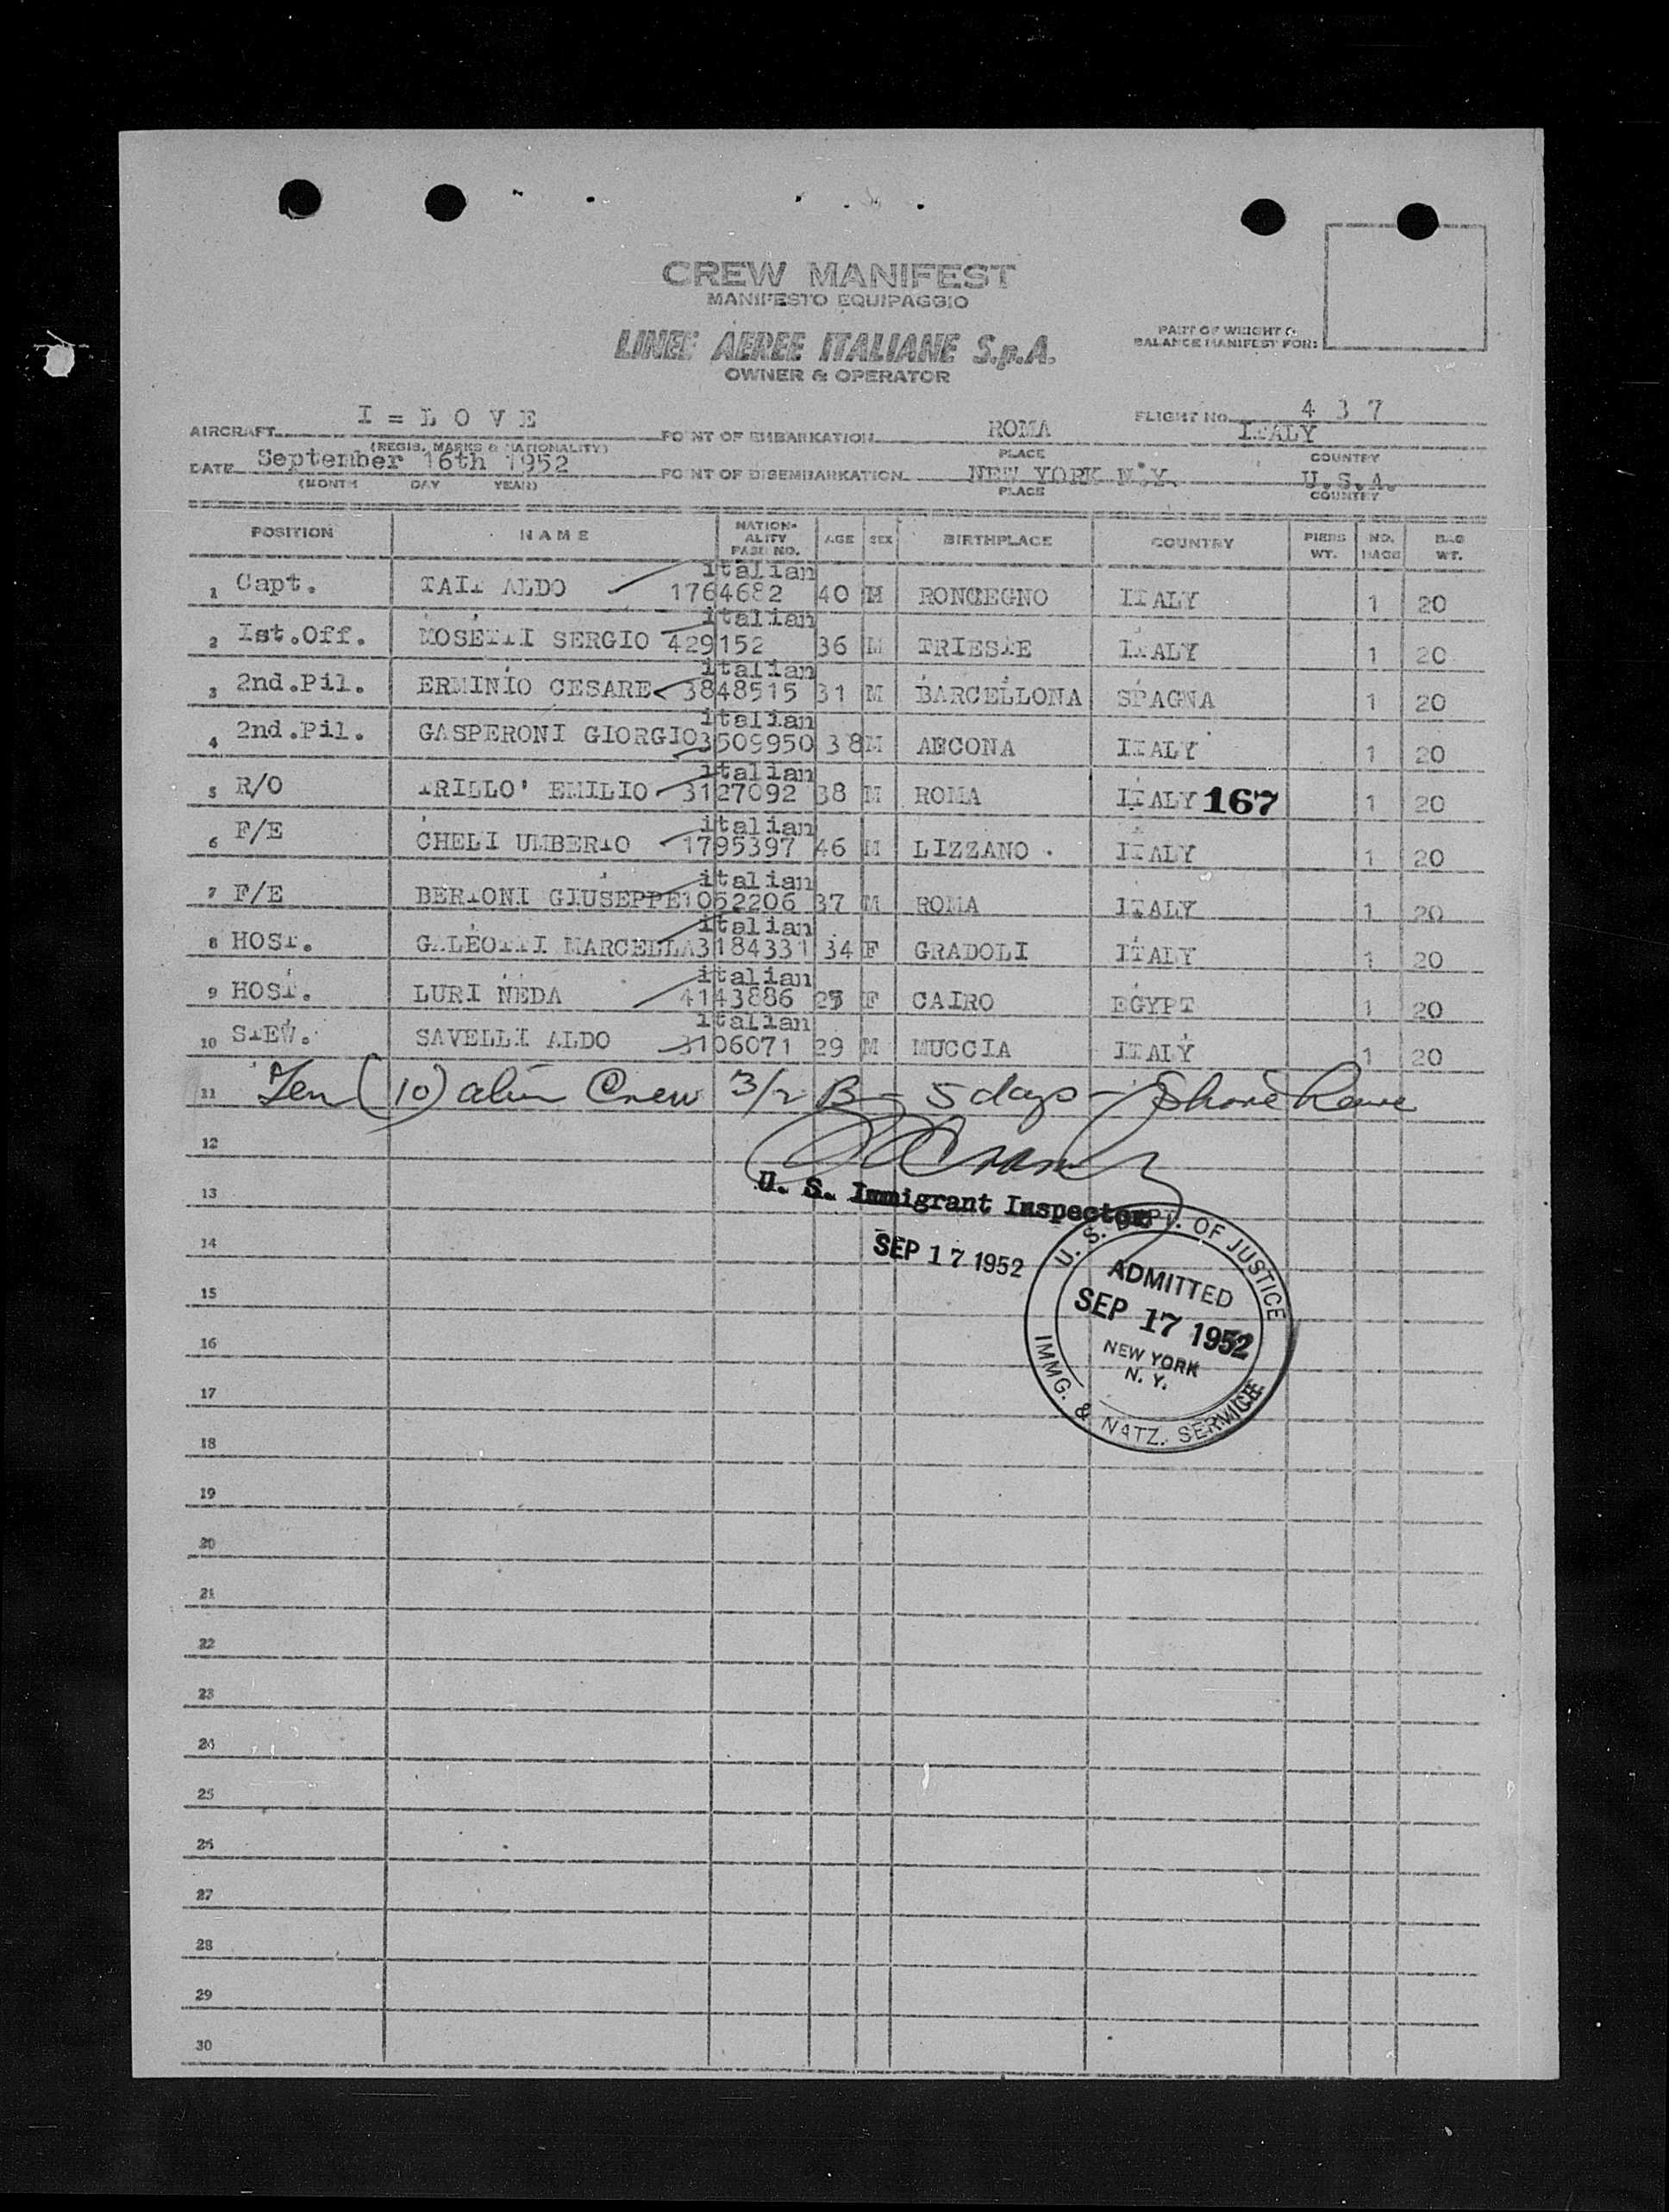 CREW MANIFEST
MANIFESTO EQUIPAGGIO
LINEE AEREE ITALIANE S.p.A.
OWNER & OPERATOR
PART OF WEIGHT &
BALANCE MANIFEST FOR:
AIRCRAFT I = L O V E POINT OF EMBARKATION ROMA ITALY FLIGHT No. 4 3 7
(REGIS. MARKS & NATIONALITY) PLACE COUNTRY
DATE September 16th 1952 POINT OF DISEMBARKATION NEW YORK N.Y. U.S.A.
(MONTH DAY YEAR) PLACE COUNTRY
POSITION NAME NATION-ALITY PASS. NO. AGE SEX BIRTHPLACE COUNTRY WT. NO. BAGS BAG WT.
1 Capt. ALDO italian 1764682 40 M ITALY 1 20
2 Ist.Off. MOSETTI SERGIO italian 429152 36 M TRIESTE ITALY 1 20
3 2nd.Pil. ERMINIO CESARE italian 3848515 31 M BARCELLONA SPAGNA 1 20
4 2nd.Pil. GASPERONI GIORGIO italian 3509950 38 M ITALY 1 20
5 R/O TRILLO' EMILIO italian 3127092 38 M ROMA ITALY 167 1 20
6 F/E CHELI UMBERTO italian 1795397 46 M LIZZANO ITALY 1 20
7 F/E BERTONI GIUSEPPE italian 1052206 37 M ROMA ITALY 1 20
8 HOST. GALEOTTI MARCELLA italian 3184331 34 F GRADOLI ITALY 1 20
9 HOST. LURI NEDA italian 4143886 F CAIRO EGYPT 1 20
10 STEW. SAVELLI ALDO italian 3106071 29 M MUCCIA ITALY 1 20
11 Ten (10) alien Crew 3/2 B - 5 days - Shore Leave
12
U. S. Immigrant Inspector
13
14 SEP 17 1952
U. S. DEPT. OF JUSTICE
ADMITTED
SEP 17 1952
NEW YORK
N. Y.
IMMG. & NATZ. SERVICE
15
16
17
18
19
20
21
22
23
24
25
26
27
28
29
30